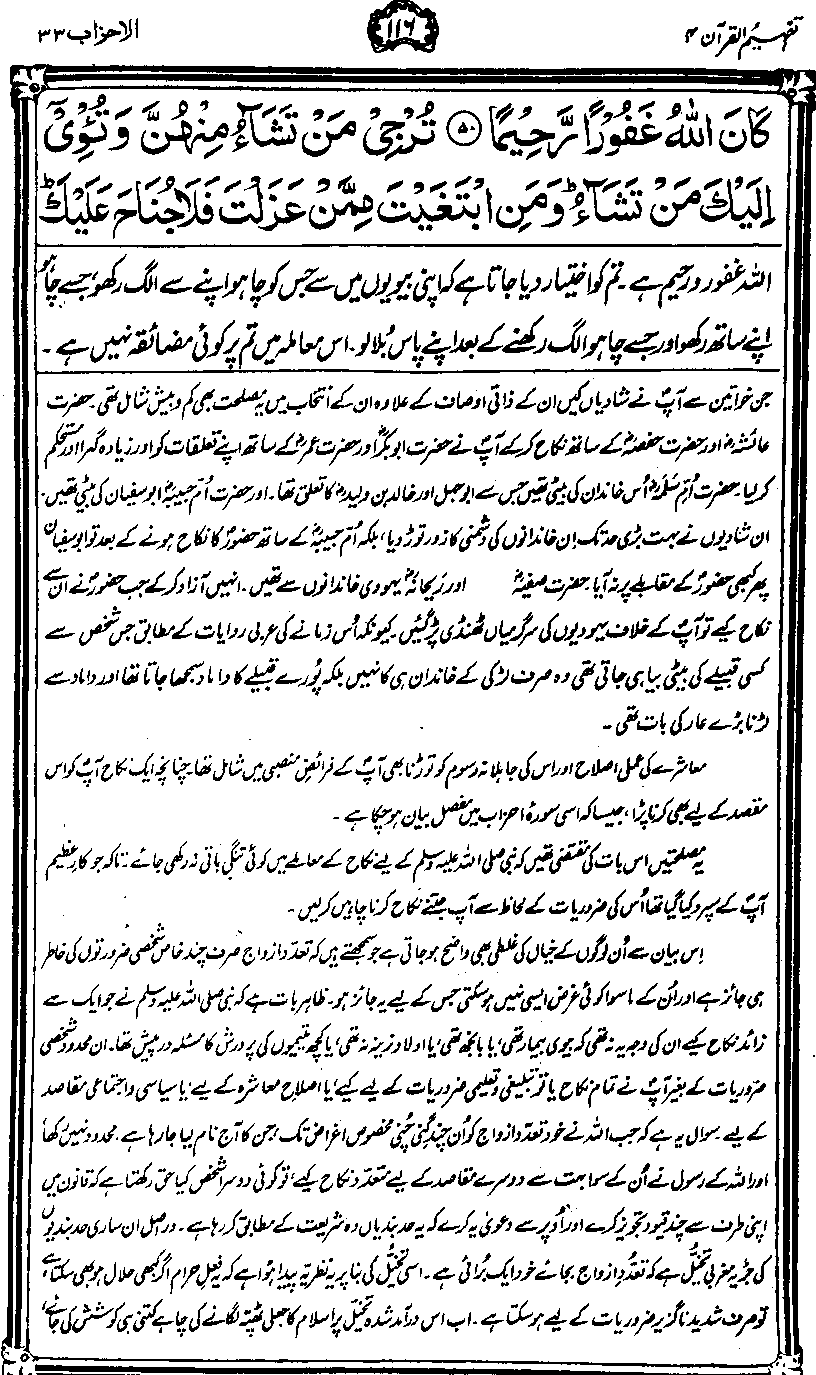 تفہیم القرآن ۴
۱۱۶
الاحزاب ۳۳
كَانَ اللّٰهُ غَفُوْرًا رَّحِيْمًا ﴿۵۰﴾ تُرْجِيْ مَنْ تَشَآءُ مِنْهُنَّ وَ تُـْٔوِيْۤ
اِلَيْكَ مَنْ تَشَآءُ ؕ وَ مَنِ ابْتَغَيْتَ مِمَّنْ عَزَلْتَ فَلَا جُنَاحَ عَلَيْكَ ؕ
اللہ غفور و رحیم ہے۔ تم کو اختیار دیا جاتا ہے کہ اپنی بیویوں میں سے جس کو چاہو اپنے سے الگ رکھو، جسے چاہو
اپنے ساتھ رکھو اور جسے چاہو الگ رکھنے کے بعد اپنے پاس بُلا لو۔ اس معاملہ میں تم پر کوئی مضائقہ نہیں ہے۔
جن خواتین سے آپؐ نے شادیاں کیں ان کے ذاتی اوصاف کے علاوہ ان کے انتخاب میں یہ مصلحت بھی کم و بیش شامل تھی۔ حضرت
عائشہؓ اور حضرت حفصہؓ کے ساتھ نکاح کر کے آپؐ نے حضرت ابوبکرؓ اور حضرت عمرؓ کے ساتھ اپنے تعلقات کو اور زیادہ گہرا اور مستحکم
کر لیا۔ حضرت اُم سلمہؓ اُس خاندان کی بیٹی تھیں جس سے ابوجہل اور خالد بن ولیدؓ کا تعلق تھا۔ اور حضرت اُم حبیبہؓ ابوسفیان کی بیٹی تھیں۔
ان شادیوں نے بہت بڑی حد تک اِن خاندانوں کی دشمنی کا زور توڑ دیا، بلکہ اُم حبیبہؓ کے ساتھ حضورؐ کا نکاح ہونے کے بعد تو ابوسفیان
پھر کبھی حضورؐ کے مقابلے پر نہ آیا۔ حضرت صفیہؓ اور رَیحانہؓ یہودی خاندانوں سے تھیں۔ انہیں آزاد کر کے جب حضورؐ نے ان سے
نکاح کیے تو آپؐ کے خلاف یہودیوں کی سرگرمیاں ٹھنڈی پڑ گئیں۔ کیونکہ اُس زمانے کی عربی روایات کے مطابق جس شخص سے
کسی قبیلے کی بیٹی بیاہی جاتی تھی وہ صرف لڑکی کے خاندان ہی کا نہیں بلکہ پُورے قبیلے کا داماد سمجھا جاتا تھا اور داماد سے
لڑنا بڑے عار کی بات تھی۔
معاشرے کی عملی اصلاح اور اس کی جاہلانہ رسوم کو توڑنا بھی آپؐ کے فرائض منصبی میں شامل تھا۔ چنانچہ ایک نکاح آپؐ کو اس
مقصد کے لیے بھی کرنا پڑا، جیسا کہ اسی سورۂ احزاب میں مفصل بیان ہو چکا ہے۔
یہ مصلحتیں اس بات کی مقتضی تھیں کہ نبی صلی اللہ علیہ وسلم کے لیے نکاح کے معاملے میں کوئی تنگی باقی نہ رکھی جائے۔ تاکہ جو کارِ عظیم
آپؐ کے سپرد کیا گیا تھا اُس کی ضروریات کے لحاظ سے آپ جتنے نکاح کرنا چاہیں کر لیں۔
اِس بیان سے اُن لوگوں کے خیال کی غلطی بھی واضح ہو جاتی ہے جو سمجھتے ہیں کہ تعدّدِ ازواج صرف چند خاص شخصی ضرورتوں کی خاطر
ہی جائز ہے اور اُن کے ماسوا کوئی غرض ایسی نہیں ہو سکتی جس کے لیے یہ جائز ہو۔ ظاہر بات ہے کہ نبی صلی اللہ علیہ وسلم نے جو ایک سے
زائد نکاح کیے ان کی وجہ یہ نہ تھی کہ بیوی بیمار تھی، یا بانجھ تھی، یا اولاد نرینہ نہ تھی، یا کچھ یتیموں کی پرورش کا مسئلہ درپیش تھا۔ ان محدود شخصی
ضروریات کے بغیر آپؐ نے تمام نکاح یا تو تبلیغی و تعلیمی ضروریات کے لیے کیے، یا اصلاح معاشرہ کے لیے، یا سیاسی و اجتماعی مقاصد
کے لیے۔ سوال یہ ہے کہ جب اللہ نے خود تعدّدِ ازواج کو اُن چند گنی چُنی مخصوص اغراض تک، جن کا آج نام لیا جا رہا ہے، محدود نہیں رکھا
اور اللہ کے رسول نے اُن کے سوا بہت سے دوسرے مقاصد کے لیے متعدّد نکاح کیے، تو کوئی دوسرا شخص کیا حق رکھتا ہے کہ قانون میں
اپنی طرف سے چند قیود تجویز کرے اور اُوپر سے دعویٰ یہ کرے کہ یہ حد بندیاں وہ شریعت کے مطابق کر رہا ہے۔ دراصل ان ساری حد بندیوں
کی جڑ یہ مغربی تخیّل ہے کہ تعدّدِ ازواج بجائے خود ایک بُرائی ہے۔ اسی تخیّل کی بنا پر یہ نظریہ پیدا ہوا ہے کہ یہ فعلِ حرام اگر کبھی حلال ہو بھی سکتا ہے
تو صرف شدید ناگزیر ضروریات کے لیے ہو سکتا ہے۔ اب اس درآمد شدہ تخیّل پر اسلام کا جعلی ٹھپّہ لگانے کی چاہے کتنی ہی کوشش کی جائے،